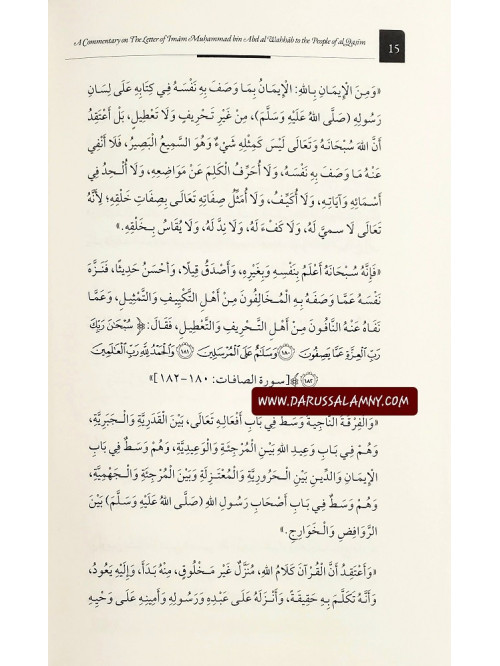 A Commentary on The Letter of Imām Muḥammad bin Abd al Wahhāb to the People of al Qaṣīm
15
«وَمِنَ الْإِيمَانِ بِاللهِ: الْإِيمَانُ بِمَا وَصَفَ بِهِ نَفْسَهُ فِي كِتَابِهِ عَلَى لِسَانِ
رَسُولِهِ (صَلَّى اللهُ عَلَيْهِ وَسَلَّمَ)، مِنْ غَيْرِ تَحْرِيفٍ وَلَا تَعْطِيلٍ، بَلْ أَعْتَقِدُ
أَنَّ اللهَ سُبْحَانَهُ وَتَعَالَى لَيْسَ كَمِثْلِهِ شَيْءٌ وَهُوَ السَّمِيعُ الْبَصِيرُ، فَلَا أَنْفِي
عَنْهُ مَا وَصَفَ بِهِ نَفْسَهُ، وَلَا أُحَرِّفُ الْكَلِمَ عَنْ مَوَاضِعِهِ، وَلَا أُلْحِدُ فِي
أَسْمَائِهِ وَآيَاتِهِ، وَلَا أُكَيِّفُ، وَلَا أُمَثِّلُ صِفَاتِهِ تَعَالَى بِصِفَاتِ خَلْقِهِ؛ لِأَنَّهُ
تَعَالَى لَا سَمِيَّ لَهُ، وَلَا كُفْءَ لَهُ، وَلَا نِدَّ لَهُ، وَلَا يُقَاسُ بِخَلْقِهِ.»
«فَإِنَّهُ سُبْحَانَهُ أَعْلَمُ بِنَفْسِهِ وَبِغَيْرِهِ، وَأَصْدَقُ قِيلًا، وَأَحْسَنُ حَدِيثًا، فَنَزَّهَ
نَفْسَهُ عَمَّا وَصَفَهُ بِهِ الْمُخَالِفُونَ مِنْ أَهْلِ التَّكْيِيفِ وَالتَّمْثِيلِ، وَعَمَّا
نَفَاهُ عَنْهُ النَّافُونَ مِنْ أَهْلِ التَّحْرِيفِ وَالتَّعْطِيلِ، فَقَالَ: ﴿سُبْحَٰنَ رَبِّكَ
رَبِّ الْعِزَّةِ عَمَّا يَصِفُونَ ۝١٨٠ وَسَلَٰمٌ عَلَى الْمُرْسَلِينَ ۝١٨١ وَالْحَمْدُ لِلَّهِ رَبِّ الْعَٰلَمِينَ
۝١٨٢﴾ [سورة الصافات: ١٨٠-١٨٢]»
WWW.DARUSSALAMNY.COM
«وَالْفِرْقَةُ النَّاجِيَةُ وَسَطٌ فِي بَابِ أَفْعَالِهِ تَعَالَى، بَيْنَ الْقَدَرِيَّةِ وَالْجَبَرِيَّةِ،
وَهُمْ فِي بَابِ وَعِيدِ اللهِ بَيْنَ الْمُرْجِئَةِ وَالْوَعِيدِيَّةِ، وَهُمْ وَسَطٌ فِي بَابِ
الْإِيمَانِ وَالدِّينِ بَيْنَ الْحَرُورِيَّةِ وَالْمُعْتَزِلَةِ وَبَيْنَ الْمُرْجِئَةِ وَالْجَهْمِيَّةِ،
وَهُمْ وَسَطٌ فِي بَابِ أَصْحَابِ رَسُولِ اللهِ (صَلَّى اللهُ عَلَيْهِ وَسَلَّمَ) بَيْنَ
الرَّوَافِضِ وَالْخَوَارِجِ.»
«وَأَعْتَقِدُ أَنَّ الْقُرْآنَ كَلَامُ اللهِ، مُنَزَّلٌ غَيْرُ مَخْلُوقٍ، مِنْهُ بَدَأَ، وَإِلَيْهِ يَعُودُ،
وَأَنَّهُ تَكَلَّمَ بِهِ حَقِيقَةً، وَأَنْزَلَهُ عَلَى عَبْدِهِ وَرَسُولِهِ وَأَمِينِهِ عَلَى وَحْيِهِ